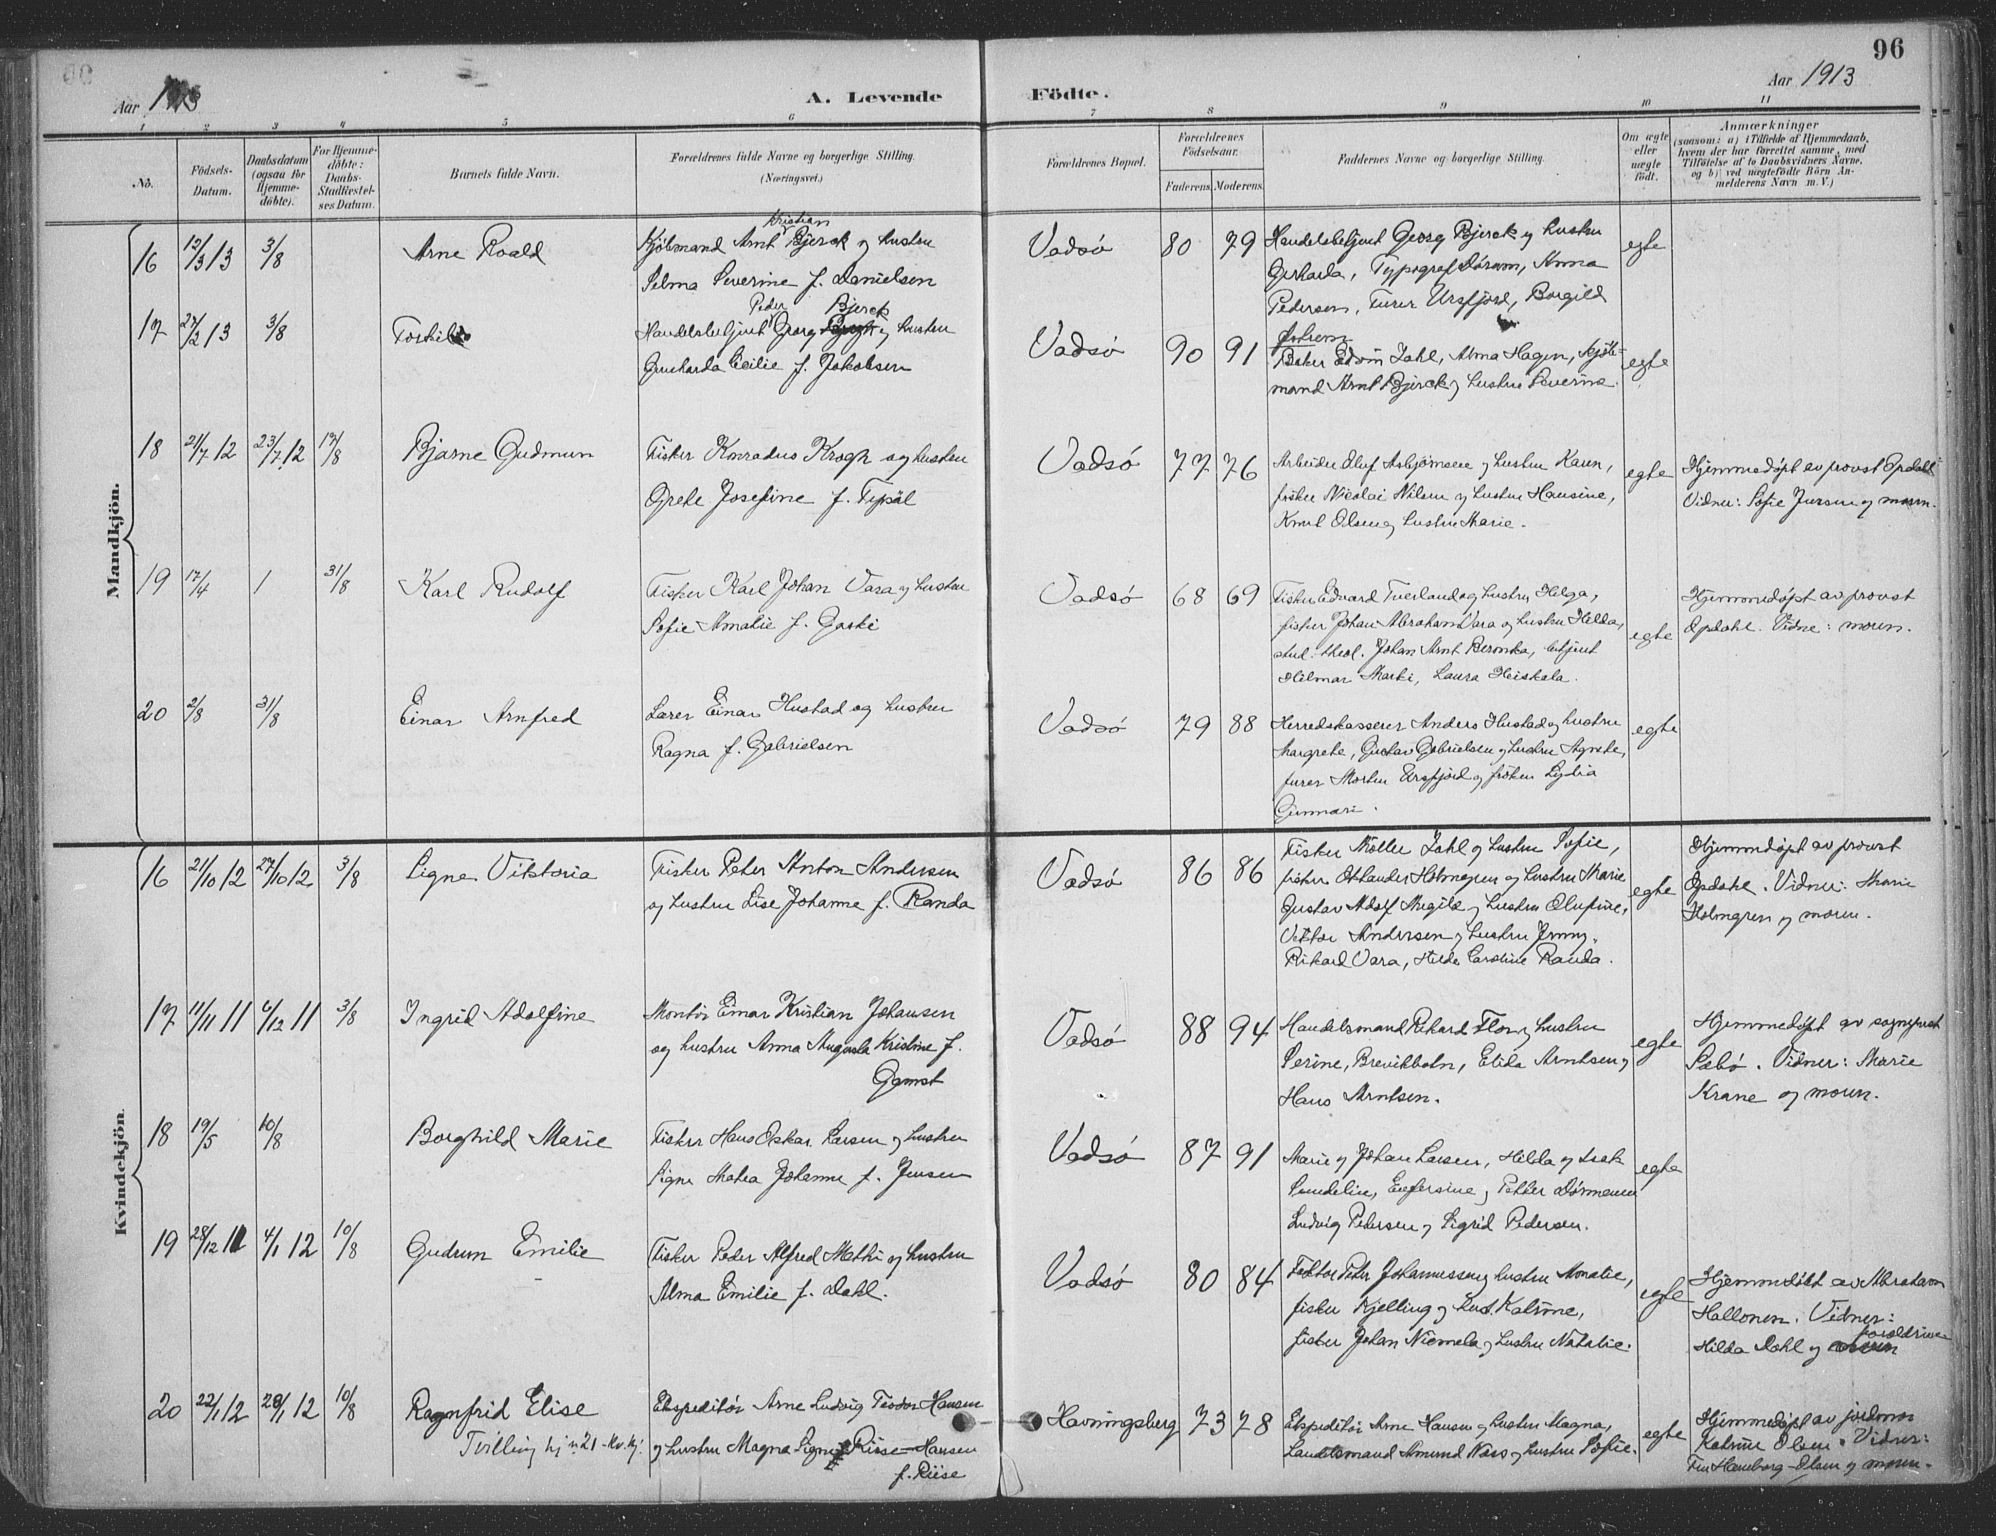 96
Aar 1913
A. Levende Födte.
Aar 1913
1 2 3 4 5 6 7 8 9 10 11
No.
Födsels-Datum.
Daabsdatum (ogsaa for Hjemme-döbte).
For Hjemme-döbte: Daabs-Stadfæstel-ses Datum.
Barnets fulde Navn.
Forældrenes fulde Navne og borgerlige Stilling.
(Næringsvei.)
Forældrenes Bopæl.
Forældrenes Födselsaar.
Faderens. Moderens.
Faddernes Navne og borgerlige Stilling.
Om ægte eller uægte födt.
Anmærkninger
(saasom: a) i Tilfælde af Hjemmedaab, hvem der har forrettet samme, med Tilföielse af to Daabsvidners Navne, og b) ved uægtefödte Börn An-melderens Navn m. V.)
Mandkjön.
16 12/3 13 3/8 Arne Roald
Kjøbmand Arnt Kristian Bjerck og hustru
Selma Severine f. Danielsen
Vadsø 80 79
Handelsbetjent Georg Bjerck og hustru
Gerharda, Typograf Dørum, Anna
Pedersen, Furer Ursfjord, Borgild
Jostrem
egte
17 27/2 13 3/8 Torkil
Handelsbetjent Georg Peder Bjerck og hustru
Gerharda Cecilie f. Jakobsen
Vadsø 90 91
Baker Edvin Dahl, Alma Hagen, kjøb-
mand Arnt Bjerck og hustru Severine.
egte
18 21/7 12 23/7 12 17/8 Bjarne Gudmun
Fisker Konradus Krogh og hustru
Grete Josefine f. Tipøl
Vadsø 77 76
Arbeider Oluf Asbjørnsen og hustru Karen,
fisker Nicolai Nilsen og hustru Hansine,
Knut Olsen og hustru Marie.
egte
Hjemmedøpt av provst Opdahl
Vidner: Sofie Jensen og moren.
19 17/4 1 31/8 Karl Rudolf
Fisker Karl Johan Vara og hustru
Sofie Amalie f. Gaski
Vadsø 68 69
Fisker Edvard Tverland og hustru Helga,
fisker Johan Abraham Vara og hustru Hilda,
stud. theol. Johan Arnt Beronka, betjent
Hilmar Marki, Laura Heiskala.
egte
Hjemmedøpt av provst
Opdahl. Vidne: moren.
20 2/8 31/8 Einar Arnfred
Lærer Einar Hustad og hustru
Ragna f. Gabrielsen
Vadsø 79 88
Herredskasserer Anders Hustad og hustru
Margrete, Gustav Gabrielsen og hustru Agnete,
furer Morten Ursfjord og frøken Lydia
Ginmari.
egte
Kvindekjön.
16 21/10 12 27/10 12 3/8 Signe Viktoria
Fisker Peter Anton Andersen
og hustru Lise Johanne f. Randa
Vadsø 86 86
Fisker Møller Dahl og hustru Sofie,
fisker Oskander Holmgren og hustru Marie
Gustav Adolf Mugila og hustru Olufine,
Viktor Andersen og hustru Jenny,
Rikard Vara, Hilda Caroline Randa.
egte
Hjemmedøpt av provst
Opdahl. Vidner: Marie
Holmgren og moren.
17 11/11 11 6/12 11 3/8 Ingrid Adolfine
Montør Einar Kristian Johansen
og hustru Anna Augusta Kristine f.
Gamst
Vadsø 88 94
Handelsmand Rikard Flor og hustru
Serine, Brevikbotn, Elida Arntsen og
Hans Arntsen.
egte
Hjemmedøpt av sogneprest
Sæbø. Vidner: Marie
Krane og moren.
18 19/5 10/8 Borghild Marie
Fisker Hans Oskar Larsen og hustru
Signe Mahea Johanne f. Jensen
Vadsø 87 91
Marie og Johan Larsen, Hilda og Isak
Sundelin, Eufersine og Petter Dørmænen
Ludvig Pedersen og Sigrid Pedersen.
egte
19 28/12 11 4/1 12 10/8 Gudrun Emilie
Fisker Peder Alfred Mathi og hustru
Alma Emilie f. Dahl.
Vadsø 80 84
Faktor Peter Johannessen og hustru Monalie,
fisker Kjelling og hust. Katrine,
fisker Johan Niemela og hustru Natalie.
egte
Hjemmedøbt av Abraham
Hallonen. Vidner:
Hilda Dahl og foreldrene
20 22/1 12 28/1 12 10/8 Ragnfrid Elise
Tvilling hj n 21 - Kv. kj.
Ekspeditør Arne Ludvig Teodor Hansen
og hustru Magna Signe Riise-Hansen
f. Riise
Havningsberg 73 78
Ekspeditør Arne Hansen og hustru Magna,
Landhandler Amund Næss og hustru Sofie.
egte
Hjemmedøpt av jordmor
Katrine Olsen. Vidner:
Fru Haneborg-Olsen og moren.